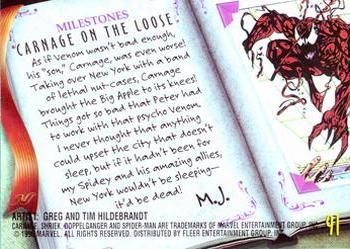 MILESTONES
CARNAGE ON THE LOOSE
As if Venom wasn't bad enough,
his "son", Carnage, was even worse!
Taking over New York with a band
of lethal nut-cases, Carnage
brought the Big Apple to its knees!
Things got so bad that Peter had
to work with that psycho Venom.
I never thought that anything
could upset the city that doesn't
sleep, but if it hadn't been for
my Spidey and his amazing allies,
New York wouldn't be sleeping—
it'd be dead!
M.J.
ARTIST: GREG AND TIM HILDEBRANDT
CARNAGE, SHRIEK, DOPPELGANGER AND SPIDER-MAN ARE TRADEMARKS OF MARVEL ENTERTAINMENT GROUP, INC.
MARVEL. ALL RIGHTS RESERVED. DISTRIBUTED BY FLEER ENTERTAINMENT GROUP, INC.
97